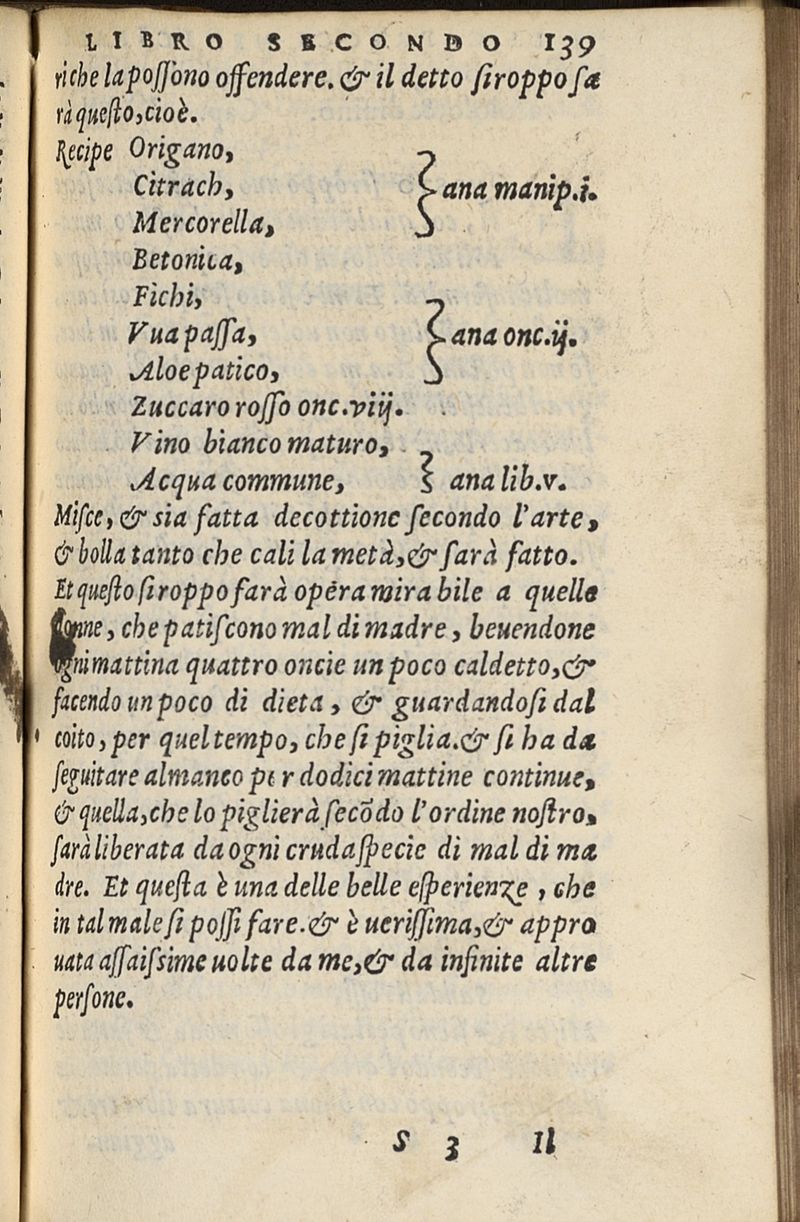 LIBRO SECONDO 139
ri che la poſſono offendere. & il detto ſiroppo ſa
rà queſto, cioè.
Recipe Origano,
Citrach, } ana manip. i.
Mercorella,
Betonica,
Fichi,
Vua paſſa, } ana onc. ij.
Aloe patico,
Zuccaro roſſo onc. viij.
Vino bianco maturo,
Acqua commune, } ana lib. v.
Miſce, & sia fatta decottione ſecondo l'arte,
& bolla tanto che cali la metà, & ſarà fatto.
Et queſto ſiroppo farà opera mirabile a quelle
donne, che patiſcono mal di madre, beuendone
ogni mattina quattro oncie un poco caldetto, &
facendo un poco di dieta, & guardandoſi dal
coito, per quel tempo, che ſi piglia. & ſi ha da
ſeguitare almanco per dodici mattine continue,
& quella, che lo piglierà ſecõdo l'ordine noſtro,
ſarà liberata da ogni cruda ſpecie di mal di ma
dre. Et queſta è una delle belle eſperienze, che
in tal male ſi poſſi fare. & è ueriſſima, & appro
uata aſſaiſsime uolte da me, & da infinite altre
perſone.
S 3 Il